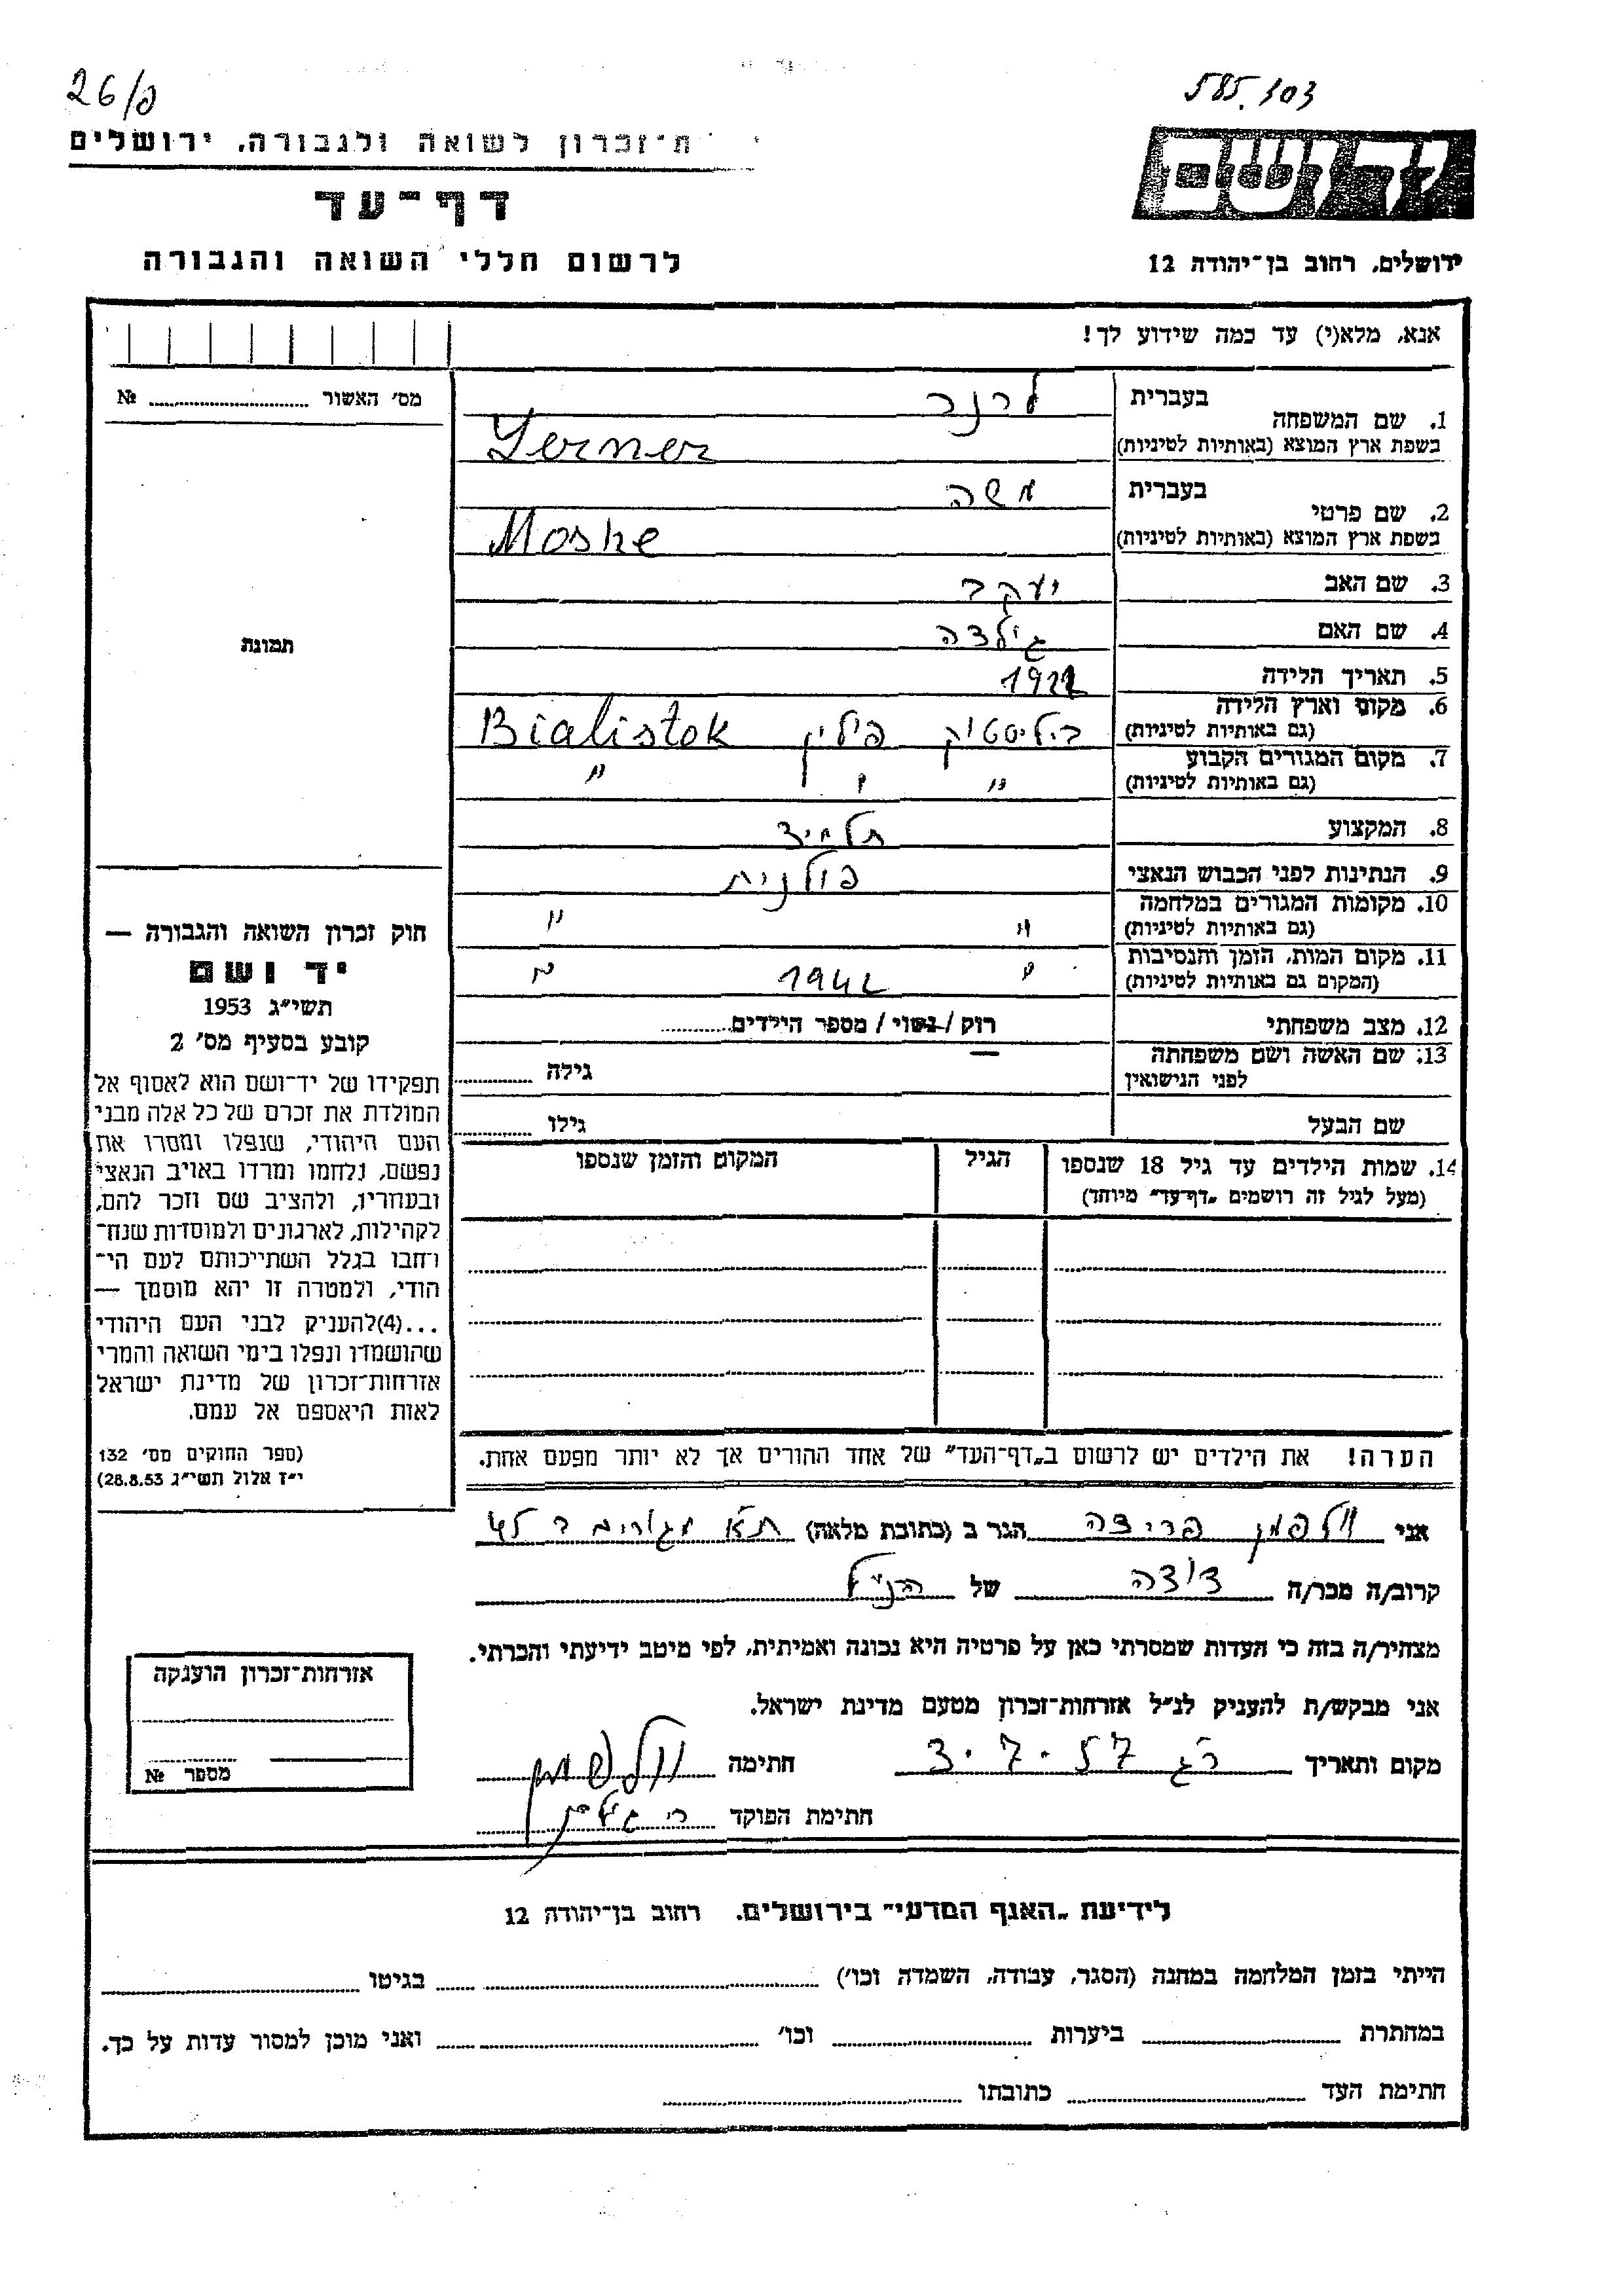 26/פ
585.103
ת־זכרון לשואה ולגבורה, ירושלים
דף־עד
לרשום חללי השואה והגבורה
יד ושם
ירושלים, רחוב בן־יהודה 12
אנא, מלא(י) עד כמה שידוע לך!
מס׳ האשור № 
1. שם המשפחה בעברית לרנר
בשפת ארץ המוצא (באותיות לטיניות) Lerner
2. שם פרטי בעברית משה
בשפת ארץ המוצא (באותיות לטיניות) Moshe
3. שם האב יעקב
4. שם האם גילדה
5. תאריך הלידה
6. מקום וארץ הלידה (גם באותיות לטיניות) ביליסטוק פולין Bialistok
7. מקום המגורים הקבוע (גם באותיות לטיניות) " " "
8. המקצוע תלמיד
9. הנתינות לפני הכבוש הנאצי פולנית
10. מקומות המגורים במלחמה (גם באותיות לטיניות) " "
11. מקום המות, הזמן והנסיבות (המקום גם באותיות לטיניות) " 1942 "
12. מצב משפחתי רוק / נשוי / מספר הילדים
13. שם האשה ושם משפחתה לפני הנישואין — גילה
שם הבעל גילו
14. שמות הילדים עד גיל 18 שנספו (מעל לגיל זה רושמים „דף־עד" מיוחד) הגיל המקום והזמן שנספו
תמונה
חוק זכרון השואה והגבורה —
יד ושם
תשי״ג 1953
קובע בסעיף מס׳ 2
תפקידו של יד־ושם הוא לאסוף אל
המולדת את זכרם של כל אלה מבני
העם היהודי, שנפלו ומסרו את
נפשם, נלחמו ומרדו באויב הנאצי
ובעוזריו, ולהציב שם וזכר להם,
לקהילות, לארגונים ולמוסדות שנח־
רבו בגלל השתייכותם לעם הי־
הודי, ולמטרה זו יהא מוסמך —
...(4) להעניק לבני העם היהודי
שהושמדו ונפלו בימי השואה והמרי
אזרחות־זכרון של מדינת ישראל
לאות היאספם אל עמם.
(ספר החוקים מס׳ 132
י״ז אלול תשי״ג 28.8.53)
הערה! את הילדים יש לרשום ב„דף־העד" של אחד ההורים אך לא יותר מפעם אחת.
אני וולפמן פרידה הגר ב (כתובת מלאה) ת״א
קרוב/ה מכר/ה דודה של הנ״ל
מצהיר/ה בזה כי העדות שמסרתי כאן על פרטיה היא נכונה ואמיתית, לפי מיטב ידיעתי והכרתי.
אני מבקש/ת להעניק לנ״ל אזרחות־זכרון מטעם מדינת ישראל.
מקום ותאריך רג 3.7.57 חתימה וולפמן
חתימת הפוקד
אזרחות־זכרון הוענקה
מספר №
לידיעת „האגף המדעי" בירושלים, רחוב בן־יהודה 12
הייתי בזמן המלחמה במחנה (הסגר, עבודה, השמדה וכו׳) בגיטו
במחתרת ביערות וכו׳ ואני מוכן למסור עדות על כך.
חתימת העד כתובתו